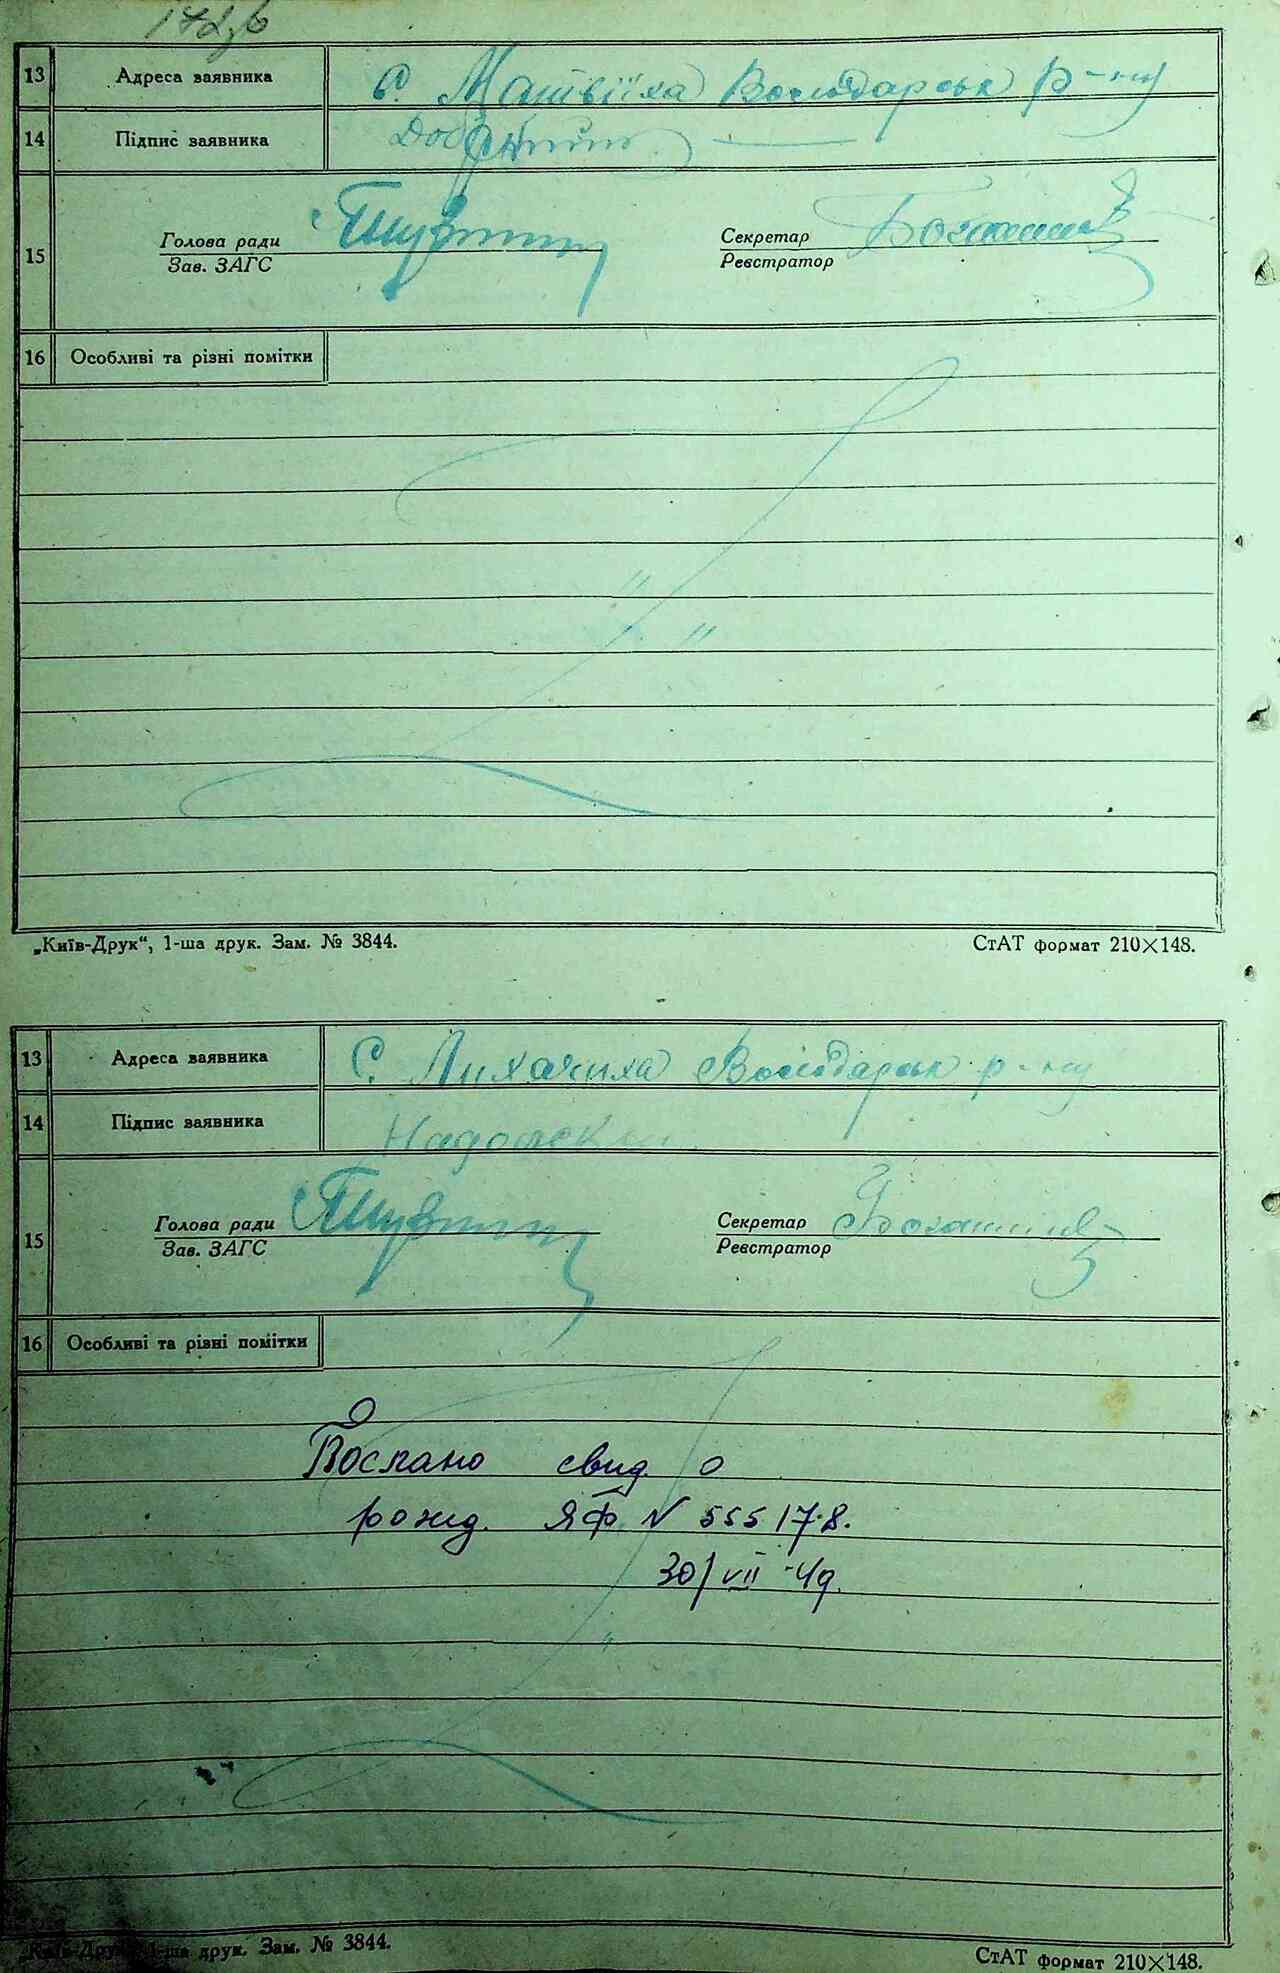 13 Адреса заявника с. Матвіїха Володарськ р-ну
14 Підпис заявника
15 Голова ради Секретар
Зав. ЗАГС Реєстратор
16 Особливі та різні помітки
„Київ-Друк“, 1-ша друк. Зам. № 3844. СтАТ формат 210×148.
13 Адреса заявника С. Лихачиха Володарськ р-ну
14 Підпис заявника
15 Голова ради Секретар
Зав. ЗАГС Реєстратор
16 Особливі та різні помітки
Послано свид. о
рожд. ЯФ N 555178.
30/VII-49.
„Київ-Друк“, 1-ша друк. Зам. № 3844. СтАТ формат 210×148.